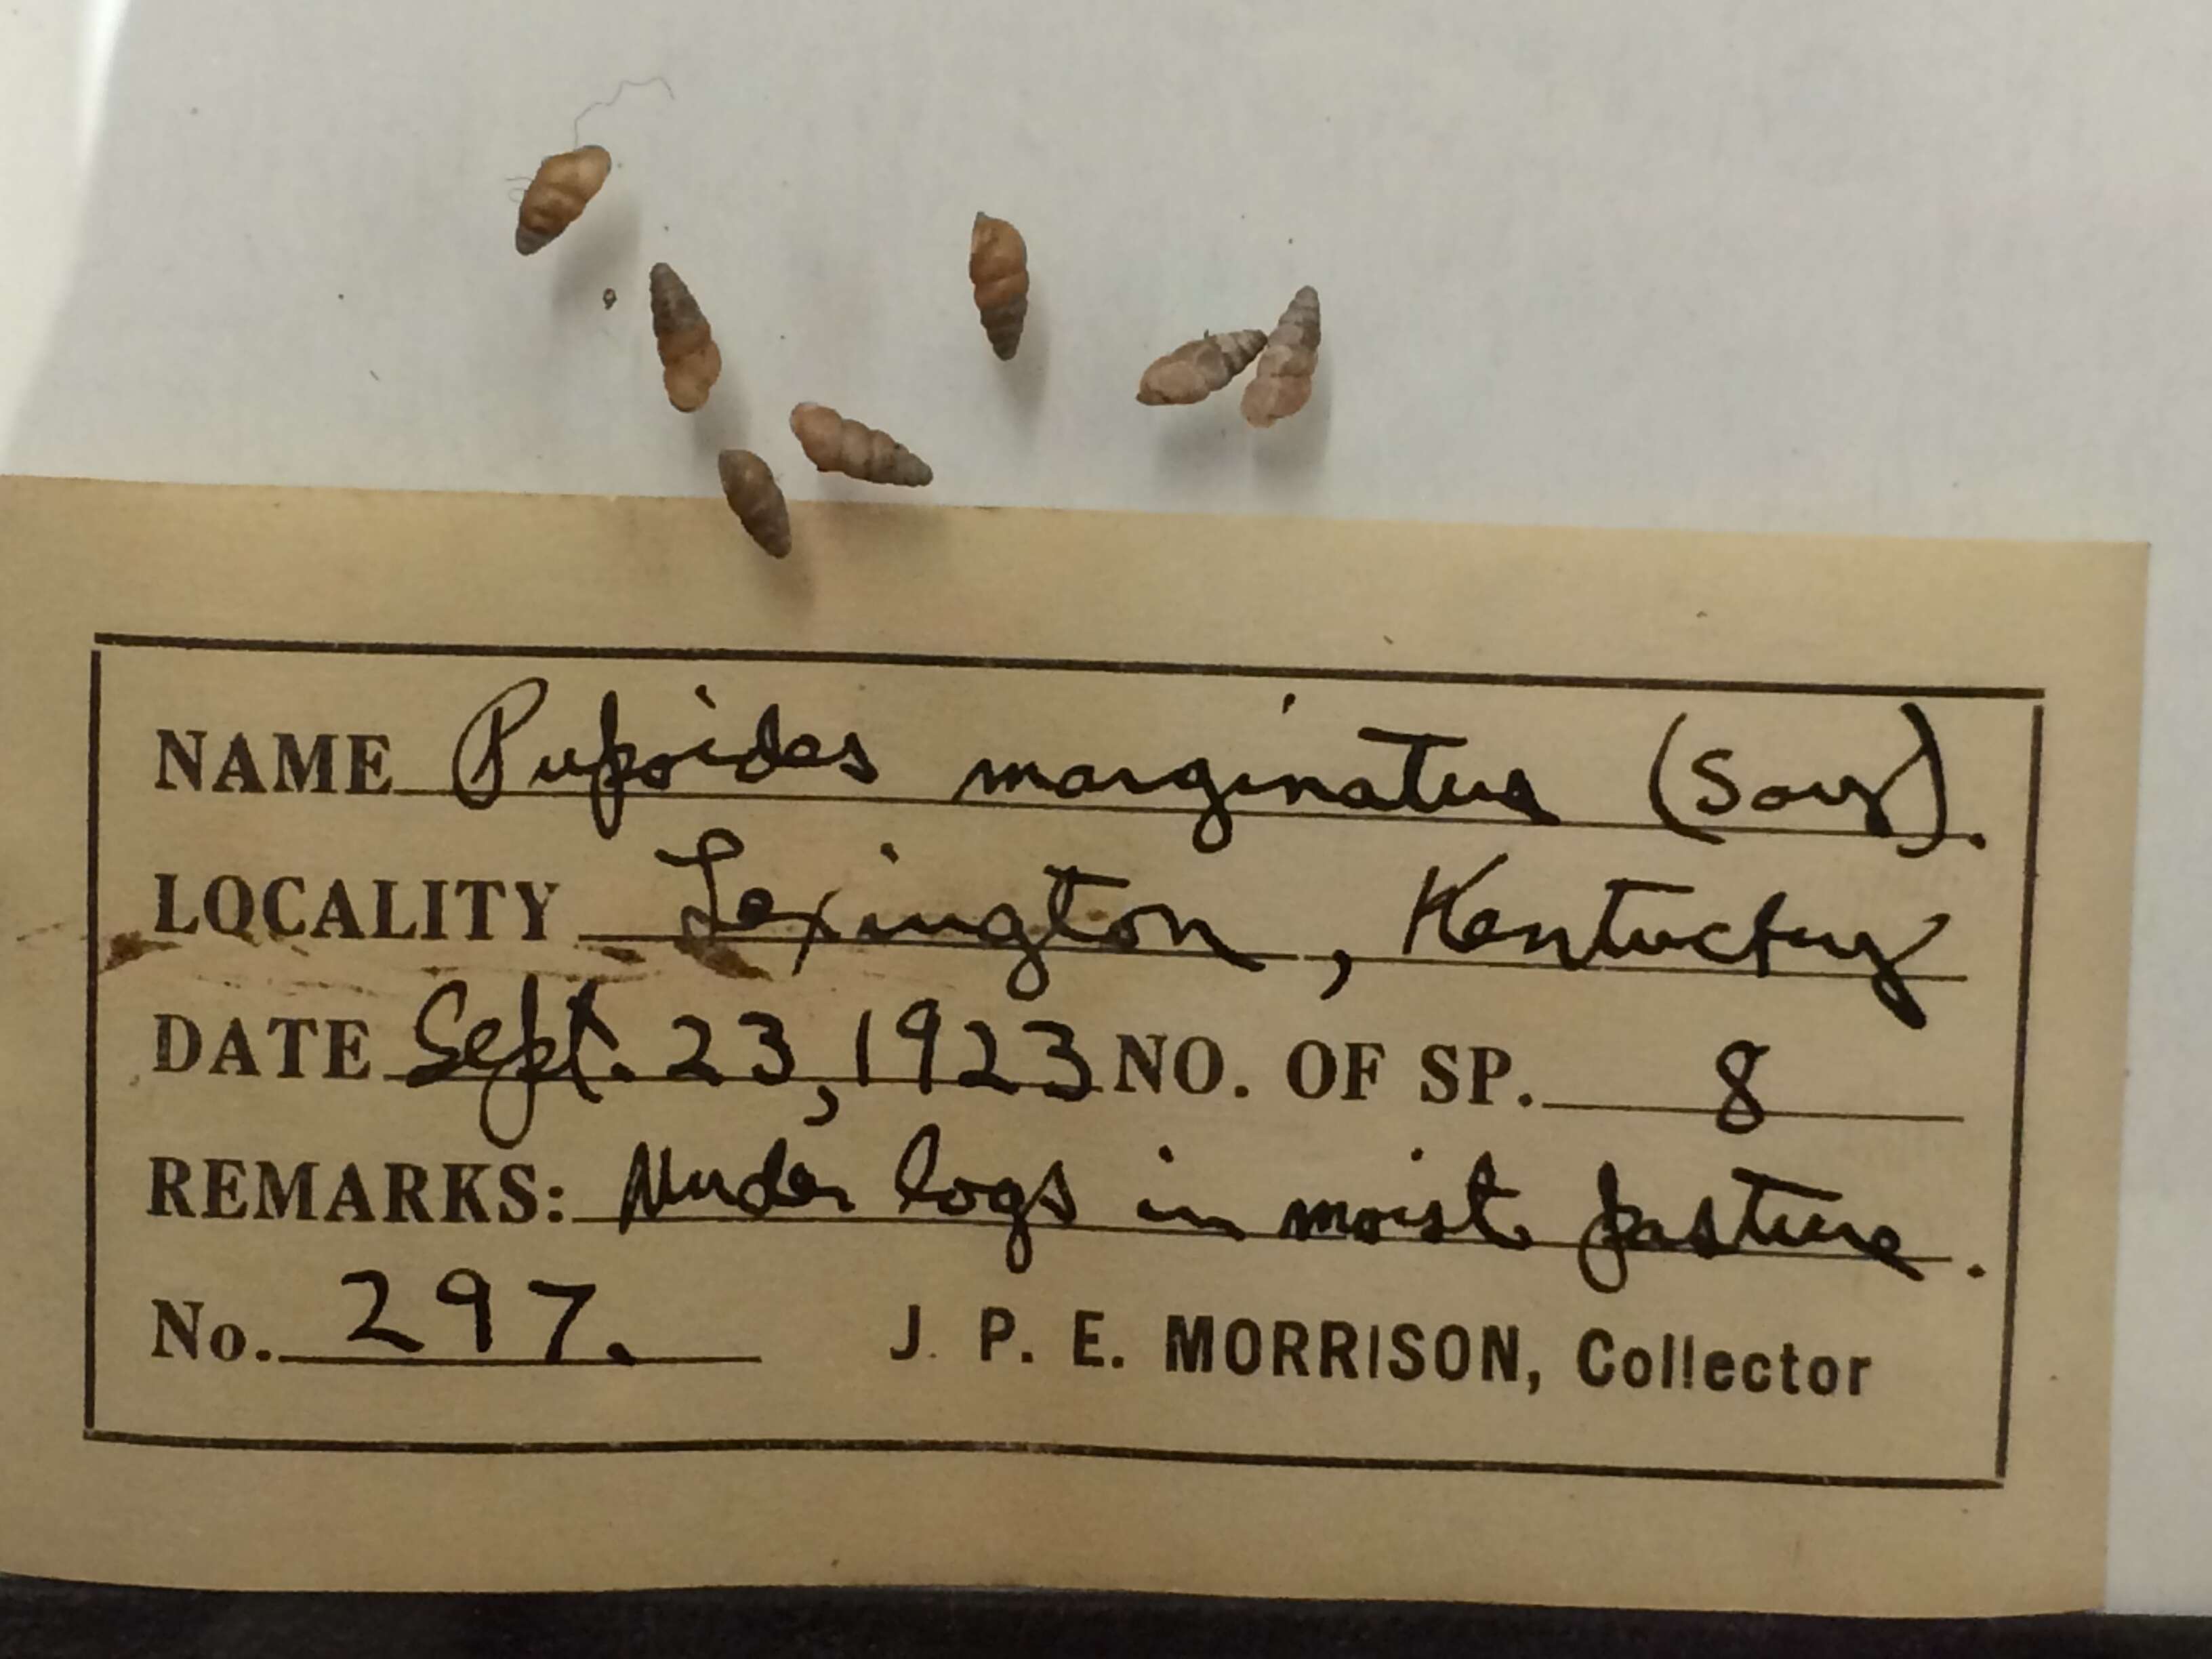 NAME Pupoides marginatus (Say).
LOCALITY Lexington, Kentucky
DATE Sept. 23, 1923 NO. OF SP. 8
REMARKS: Under logs in moist pasture.
No. 297. J. P. E. MORRISON, Collector